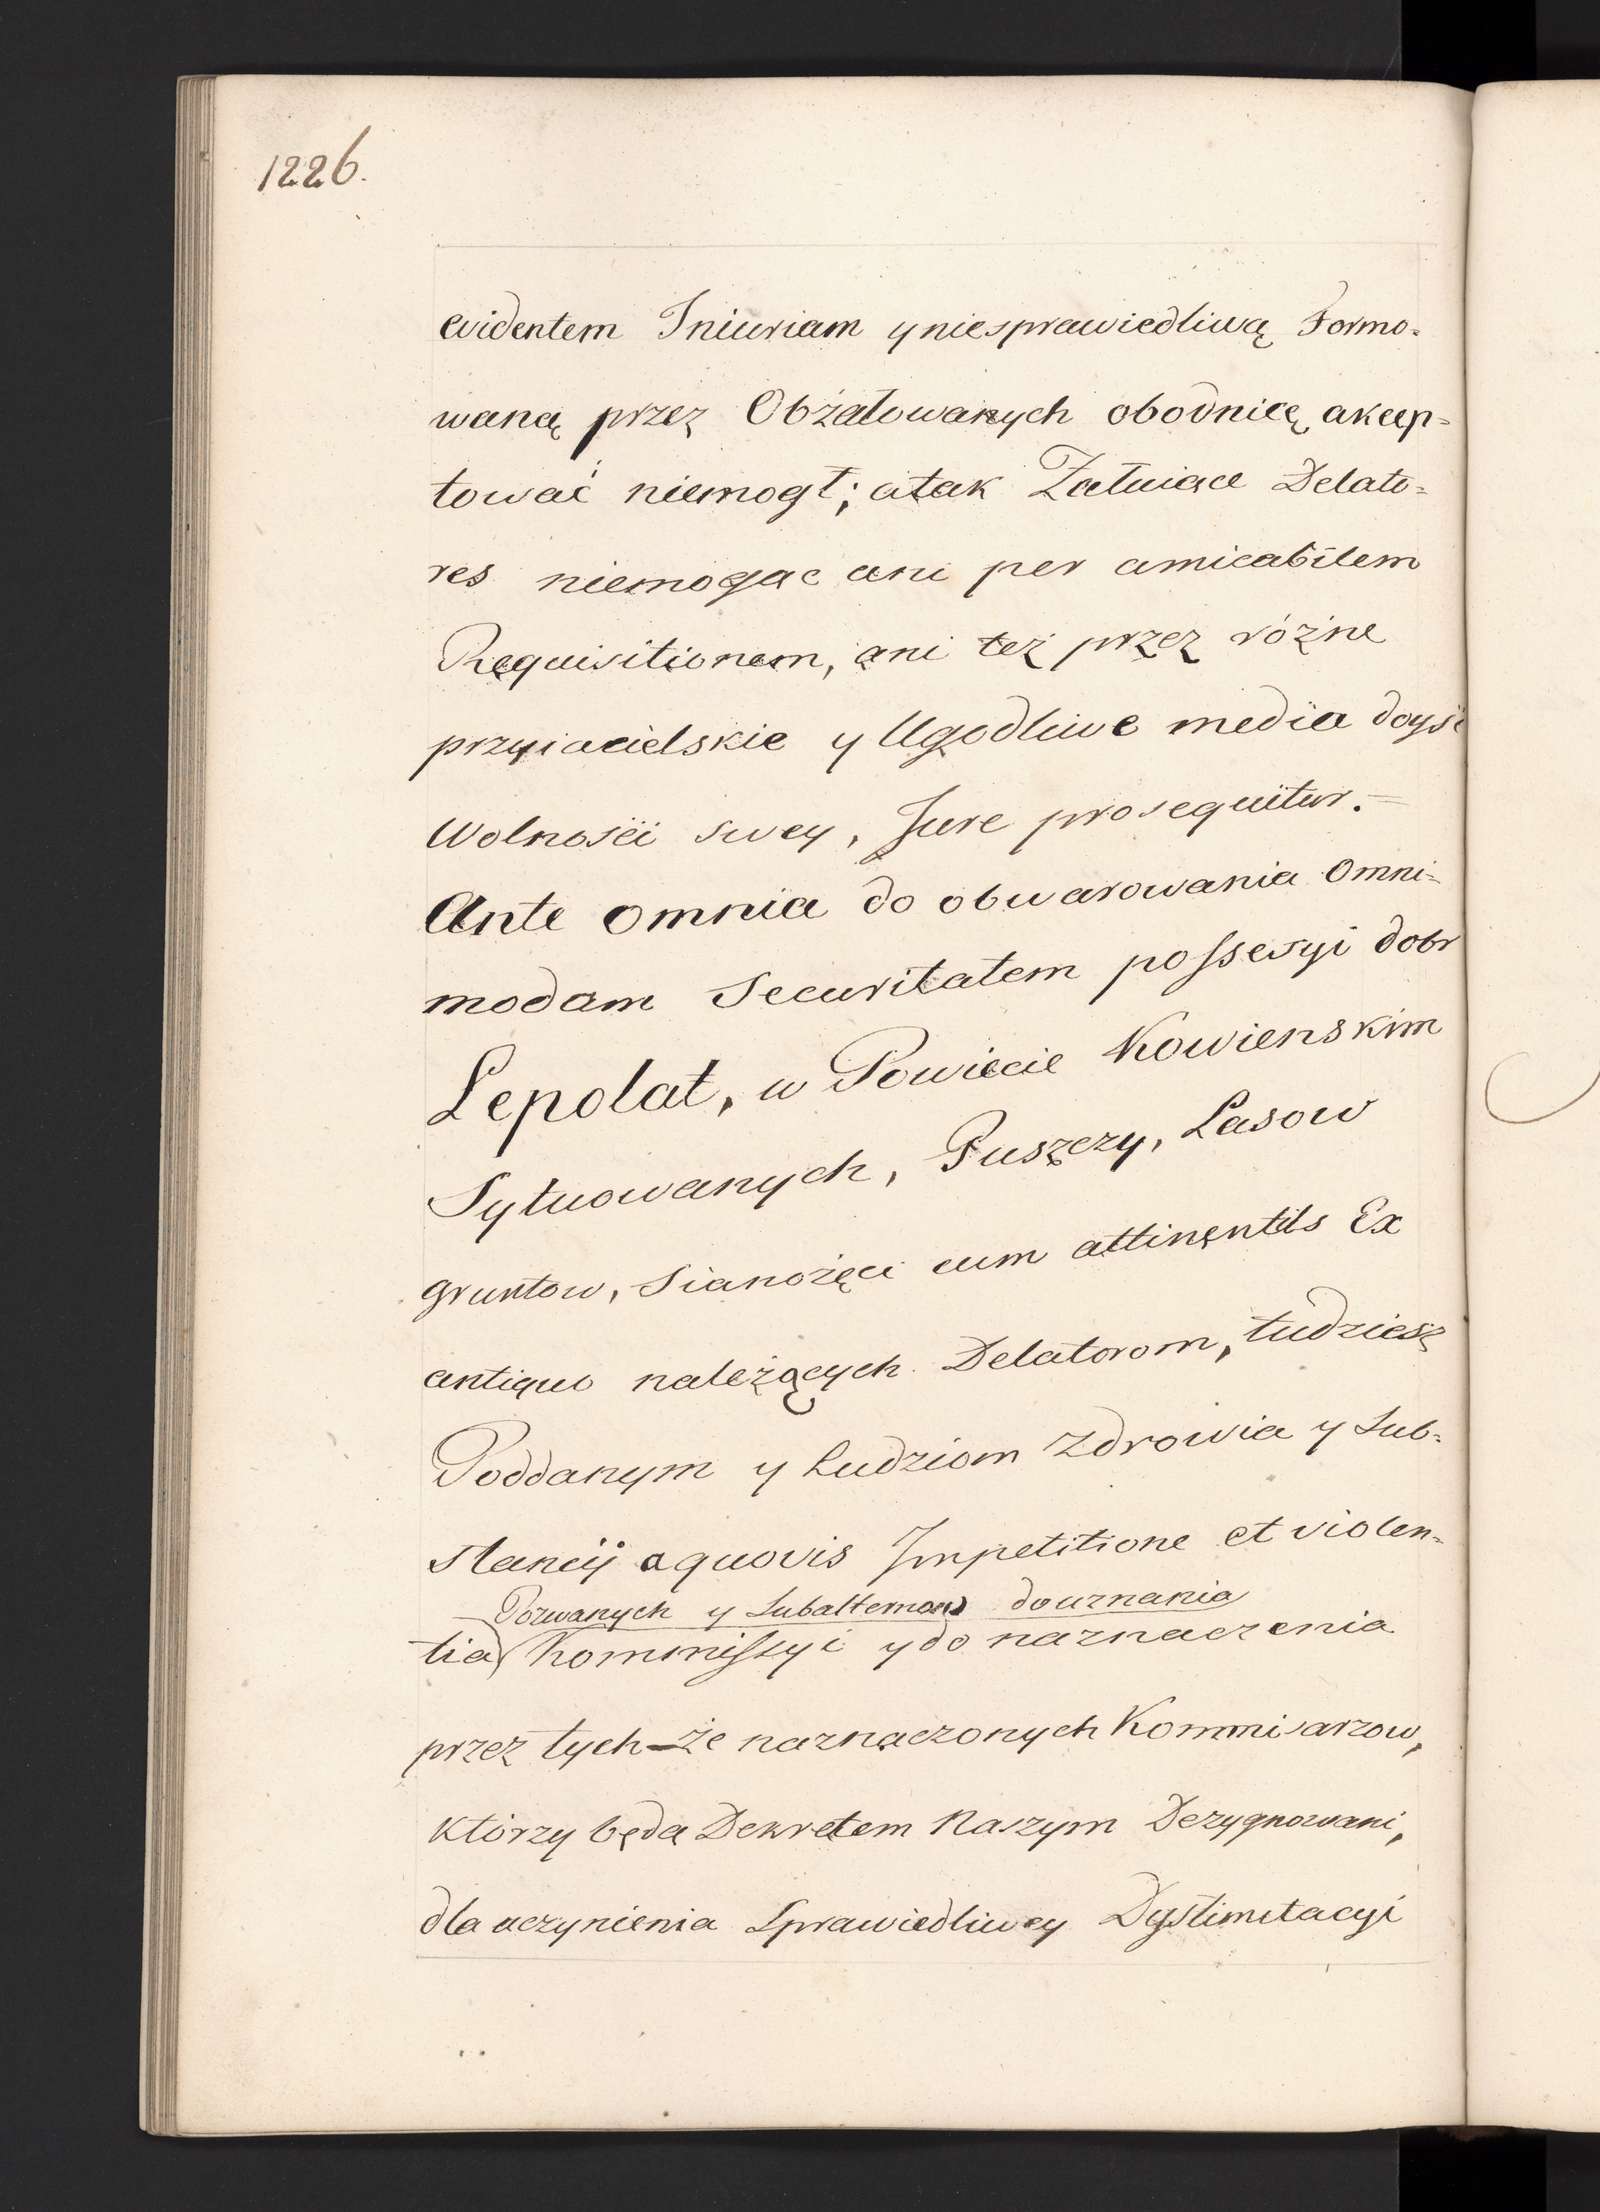 1226.
evidentem Iniuriam y niesprawiedliwą Formo=
waną przez Obżałowanych obodnicę, akcep=
tować niemogł; atak Żałuiące Delato=
res niemogąc ani per amicabilem
Requisitionem, ani też przez różne
przyiacielskie y Ugodliwe media doyść
Wolności swey, Jure prosequitur.=
Ante omnia do obwarowania omni=
modam Securitatem possesyi dobr
Lepolat, w Powiecie Kowienskim
Sytuowanych, Puszczy, Lasow
gruntow, Sianożęci cum attinentiis Ex
antiquo należących Delatorom, tudziesz
Poddanym y Ludziom Zdrowia y Sub=
stancij aquovis Impetitione et violen=
Pozwanych y Subalternow do uznania
tia Kommissyi y do naznaczenia
przez tych-że naznaczonych Kommisarzow,
którzy będą Dekretem Naszym Dezygnowani,
dla uczynienia Sprawiedliwey Dyslimitacyi